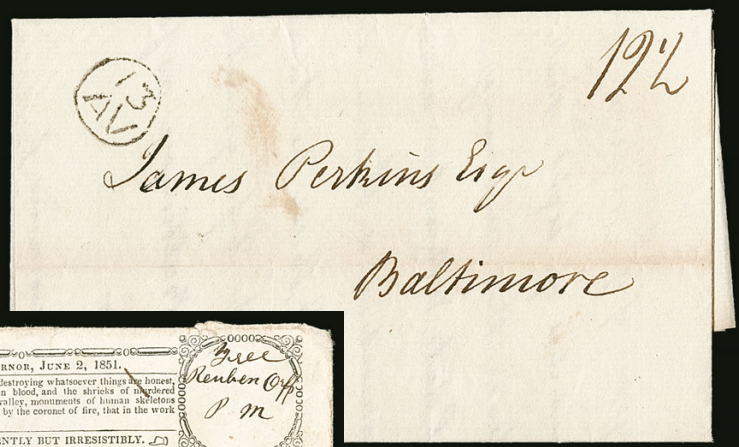 13
AV
12½
James Perkins Esqr
Baltimore
RNOR, JUNE 2, 1851.
destroying whatsoever things are honest,
n blood, and the shrieks of murdered
valley, monuments of human skeletons
by the coronet of fire, that in the work
ENTLY BUT IRRESISTIBLY.
Free
Reuben Orff
P M